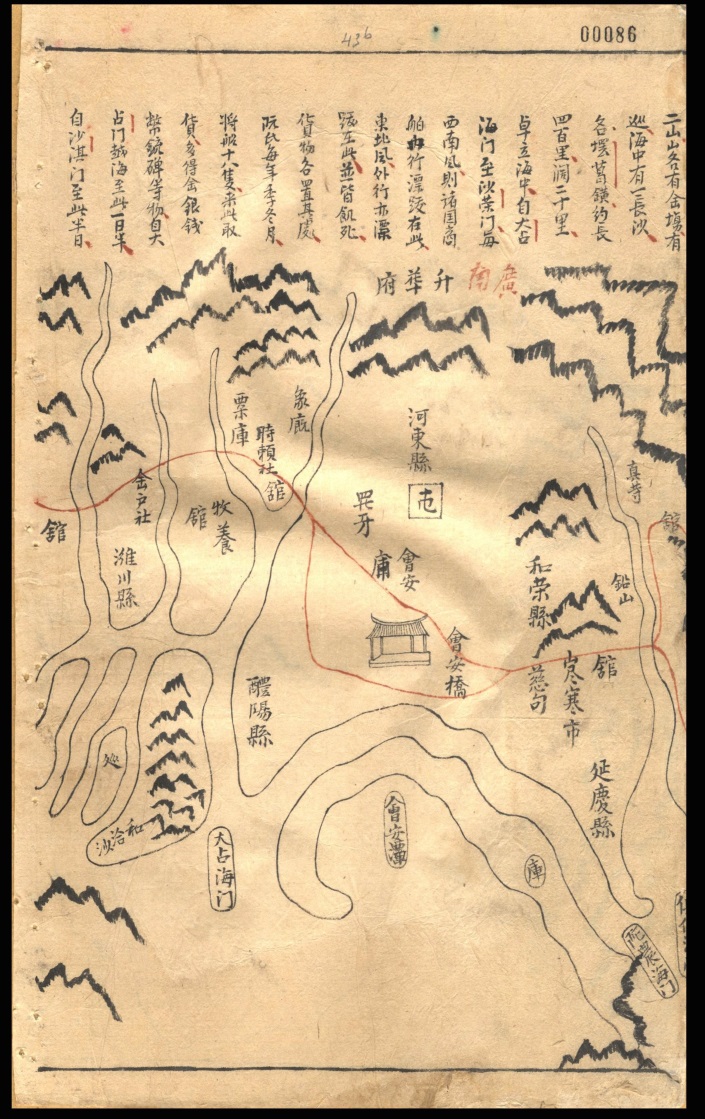 436
00086
二山山各有金塲有
海中有一長沙
名葛鐄約長
四百里濶二十里
卓立海中自大占
海门至沙荣门每
西南風則諸国商
舶内行漂跋在此
東北風外行亦漂
跋至此並皆飢死
貨物各置其處
阮氏每年季冬月
將船十八隻来此取
貨多得金銀钱
幣銃碑等物自大
占门越海至此一日半
自沙淇门至此半日
廣南
升華府
真寺
舘
鉛山
河東縣
象廐
粟庫
時頼社
舘
金户社
舘
牧養
舘
濰川縣
會安
庯
會安橋
和荣縣
慈句
舘
延慶縣
醴陽縣
和洽沙
大占海门
會安
庫
海门